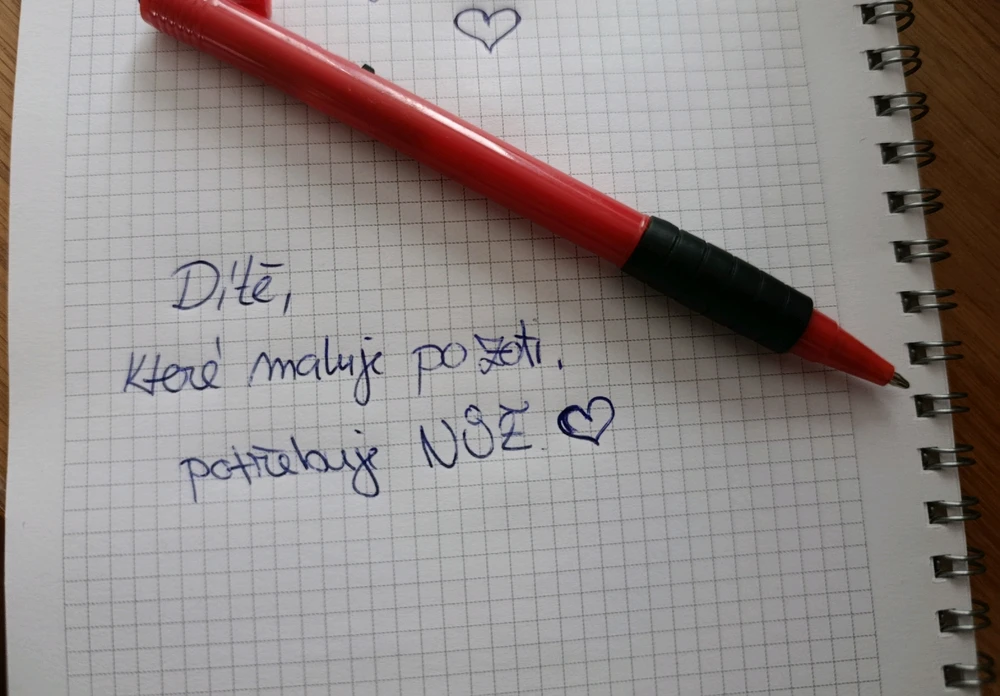 Dítě,
které maluje po zdi,
potřebuje NŮŽ ♡